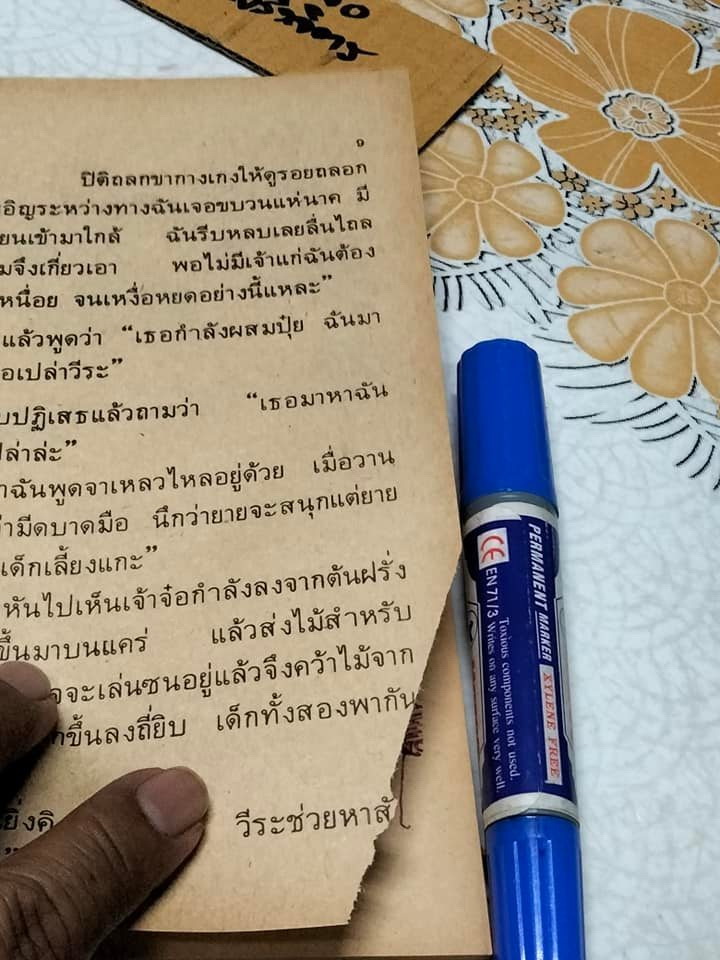 ๑
ปิติถลกขากางเกงให้ดูรอยถลอก
อิญระหว่างทางฉันเจอขบวนแห่นาค มี
ยนเข้ามาใกล้ ฉันรีบหลบเลยลื่นไถล
มจึงเกี่ยวเอา พอไม่มีเจ้าแก่ฉันต้อง
หนื่อย จนเหงื่อหยดอย่างนี้แหละ”
แล้วพูดว่า “เธอกำลังผสมปุ๋ย ฉันมา
อเปล่าวีระ”
บปฏิเสธแล้วถามว่า “เธอมาหาฉัน
ปล่าล่ะ”
าฉันพูดจาเหลวไหลอยู่ด้วย เมื่อวาน
ว่ามีดบาดมือ นึกว่ายายจะสนุกแต่ยาย
เด็กเลี้ยงแกะ”
หันไปเห็นเจ้าจ๋อกำลังลงจากต้นฝรั่ง
ขึ้นมาบนแคร่ แล้วส่งไม้สำหรับ
จจะเล่นซนอยู่แล้วจึงคว้าไม้จาก
กขึ้นลงถี่ยิบ เด็กทั้งสองพากัน
ยิ่งคิ วีระช่วยหาสั
PERMANENT MARKER XYLENE FREE
CE EN 71/3 Toxious components not used.
Writes on any surface very well.